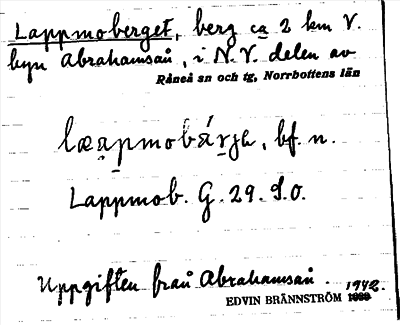 Lappmoberget, berg ca 2 km V.
byn Abrahamsån, i N.V. delen av
Råneå sn och tg, Norrbottens län
bf. n.
Lappmob. G. 29. S.O.
Uppgiften från Abrahamsån. 1942.
EDVIN BRÄNNSTRÖM